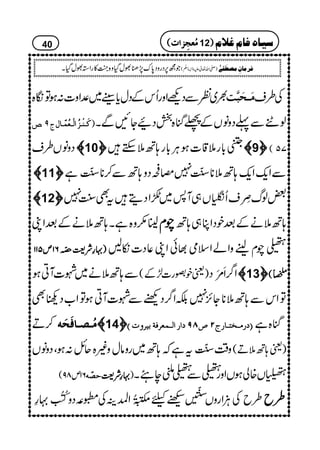 سیاہ فام غلام (12 مُعجزات) 40
فرمانِ مصطفٰے (صلی اللہ تعالیٰ علیہ واٰلہ وسلم) جو مجھ پر درود پاک پڑھنا بھول گیا وہ جنت کا راستہ بھول گیا۔
کی طرف مَحَبَّت بھری نظر سے دیکھے اور اُس کے دل یا سینے میں عداوت نہ ہو تو نگاہ
لوٹنے سے پہلے دونوں کے پچھلے گناہ بخش دیئے جائیں گے۔ (کَنْزُ الْعُمّال ج 9 ص
۵۷) ﴿9﴾ جتنی بار ملاقات ہو ہر بار ہاتھ ملا سکتے ہیں ﴿10﴾ دونوں طرف
سے ایک ایک ہاتھ ملانا سنّت نہیں مصافحہ دو ہاتھ سے کرنا سنّت ہے ﴿11﴾
بعض لوگ صِرف اُنگلیاں ہی آپس میں ٹکرا دیتے ہیں یہ بھی سنّت نہیں ﴿12﴾
ہاتھ ملانے کے بعد خود اپنا ہی ہاتھ چوم لینا مکروہ ہے۔ ہاتھ ملانے کے بعد اپنی
ہتھیلی چوم لینے والے اسلامی بھائی اپنی عادت نکالیں (بہارِ شریعت حصّہ ۱۶ ص ۱۱۵
ملخصاً) ﴿13﴾ اگر اَمْرَد (یعنی خوبصورت لڑکے) سے ہاتھ ملانے میں شہوت آتی ہو
تو اس سے ہاتھ ملانا جائز نہیں بلکہ اگر دیکھنے سے شہوت آتی ہو تو اب دیکھنا بھی
گناہ ہے (درمختار ج۲ ص ۹۸ دار المعرفۃ بیروت) ﴿14﴾ مُصافَحَہ کرتے
(یعنی ہاتھ ملاتے) وقت سنّت یہ ہے کہ ہاتھ میں رومال وغیرہ حائل نہ ہو، دونوں
ہتھیلیاں خالی ہوں اور ہتھیلی سے ہتھیلی ملنی چاہئے۔ (بہارِ شریعت حصّہ ۱۶ ص ۹۸)
طرح طرح کی ہزاروں سنّتیں سیکھنے کیلئے مکتبۃُ المدینہ کی مطبوعہ دو کُتُب بہارِ